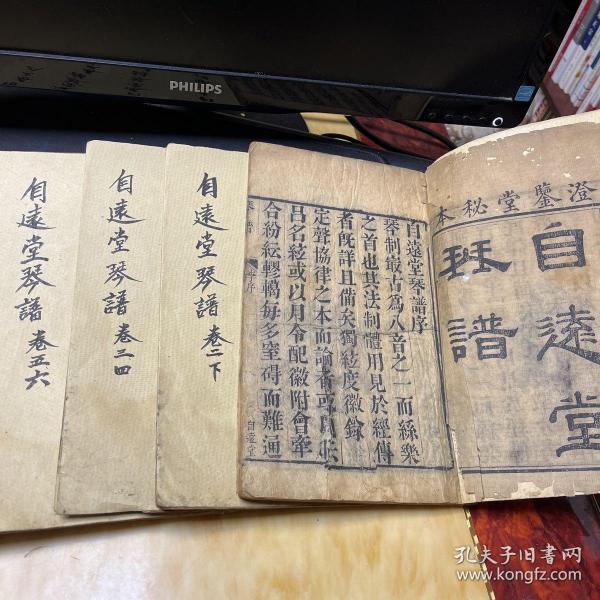 PHILIPS
澄鑒堂秘本
自遠堂
琴譜
自遠堂琴譜序
琴制最古為八音之一而絲樂
之首也其法制體用見於經傳
者既詳且備矣獨絃度徽
定聲協律之本而論者或
呂名絃或以月令配徽附會牽
合紛紜轇轕每多窒碍而難通
自遠堂
自遠堂琴譜 卷二下
自遠堂琴譜 卷三四
自遠堂琴譜 卷五六
孔夫子旧书网
www.kongfz.com